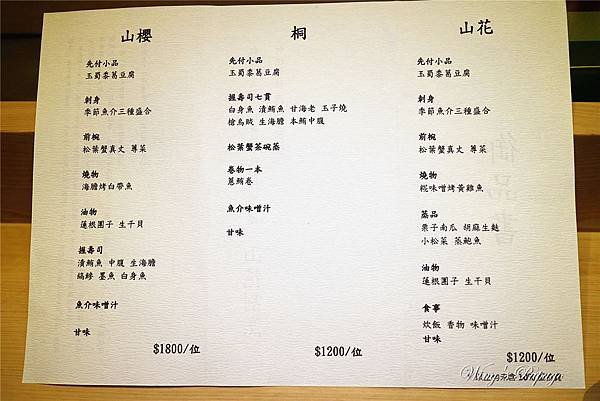 山櫻
先付小品
玉蜀黍葛豆腐
刺身
季節魚介三種盛合
前椀
松葉蟹真丈 蓴菜
燒物
海膽烤白帶魚
油物
蓮根團子 生干貝
握壽司
漬鮪魚 中腹 生海膽
縞鰺 墨魚 白身魚
魚介味噌汁
甘味
$1800/位
桐
先付小品
玉蜀黍葛豆腐
握壽司七貫
白身魚 漬鮪魚 甘海老 玉子燒
槍烏賊 生海膽 本鮪中腹
松葉蟹茶碗蒸
卷物一本
蔥鮪卷
魚介味噌汁
甘味
$1200/位
山花
先付小品
玉蜀黍葛豆腐
刺身
季節魚介三種盛合
前椀
松葉蟹真丈 蓴菜
燒物
糀味噌烤黃雞魚
蒸品
栗子南瓜 胡麻生麩
小松菜 蒸鮑魚
油物
蓮根團子 生干貝
食事
炊飯 香物 味噌汁
甘味
$1200/位